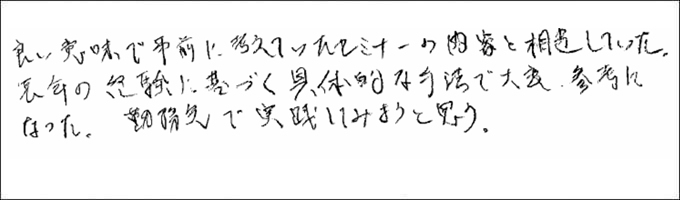 良い意味で事前に考えていたセミナーの内容と相違していた。
長年の経験に基づく具体的な手法で大変、参考に
なった。 勤務先で実践してみようと思う。